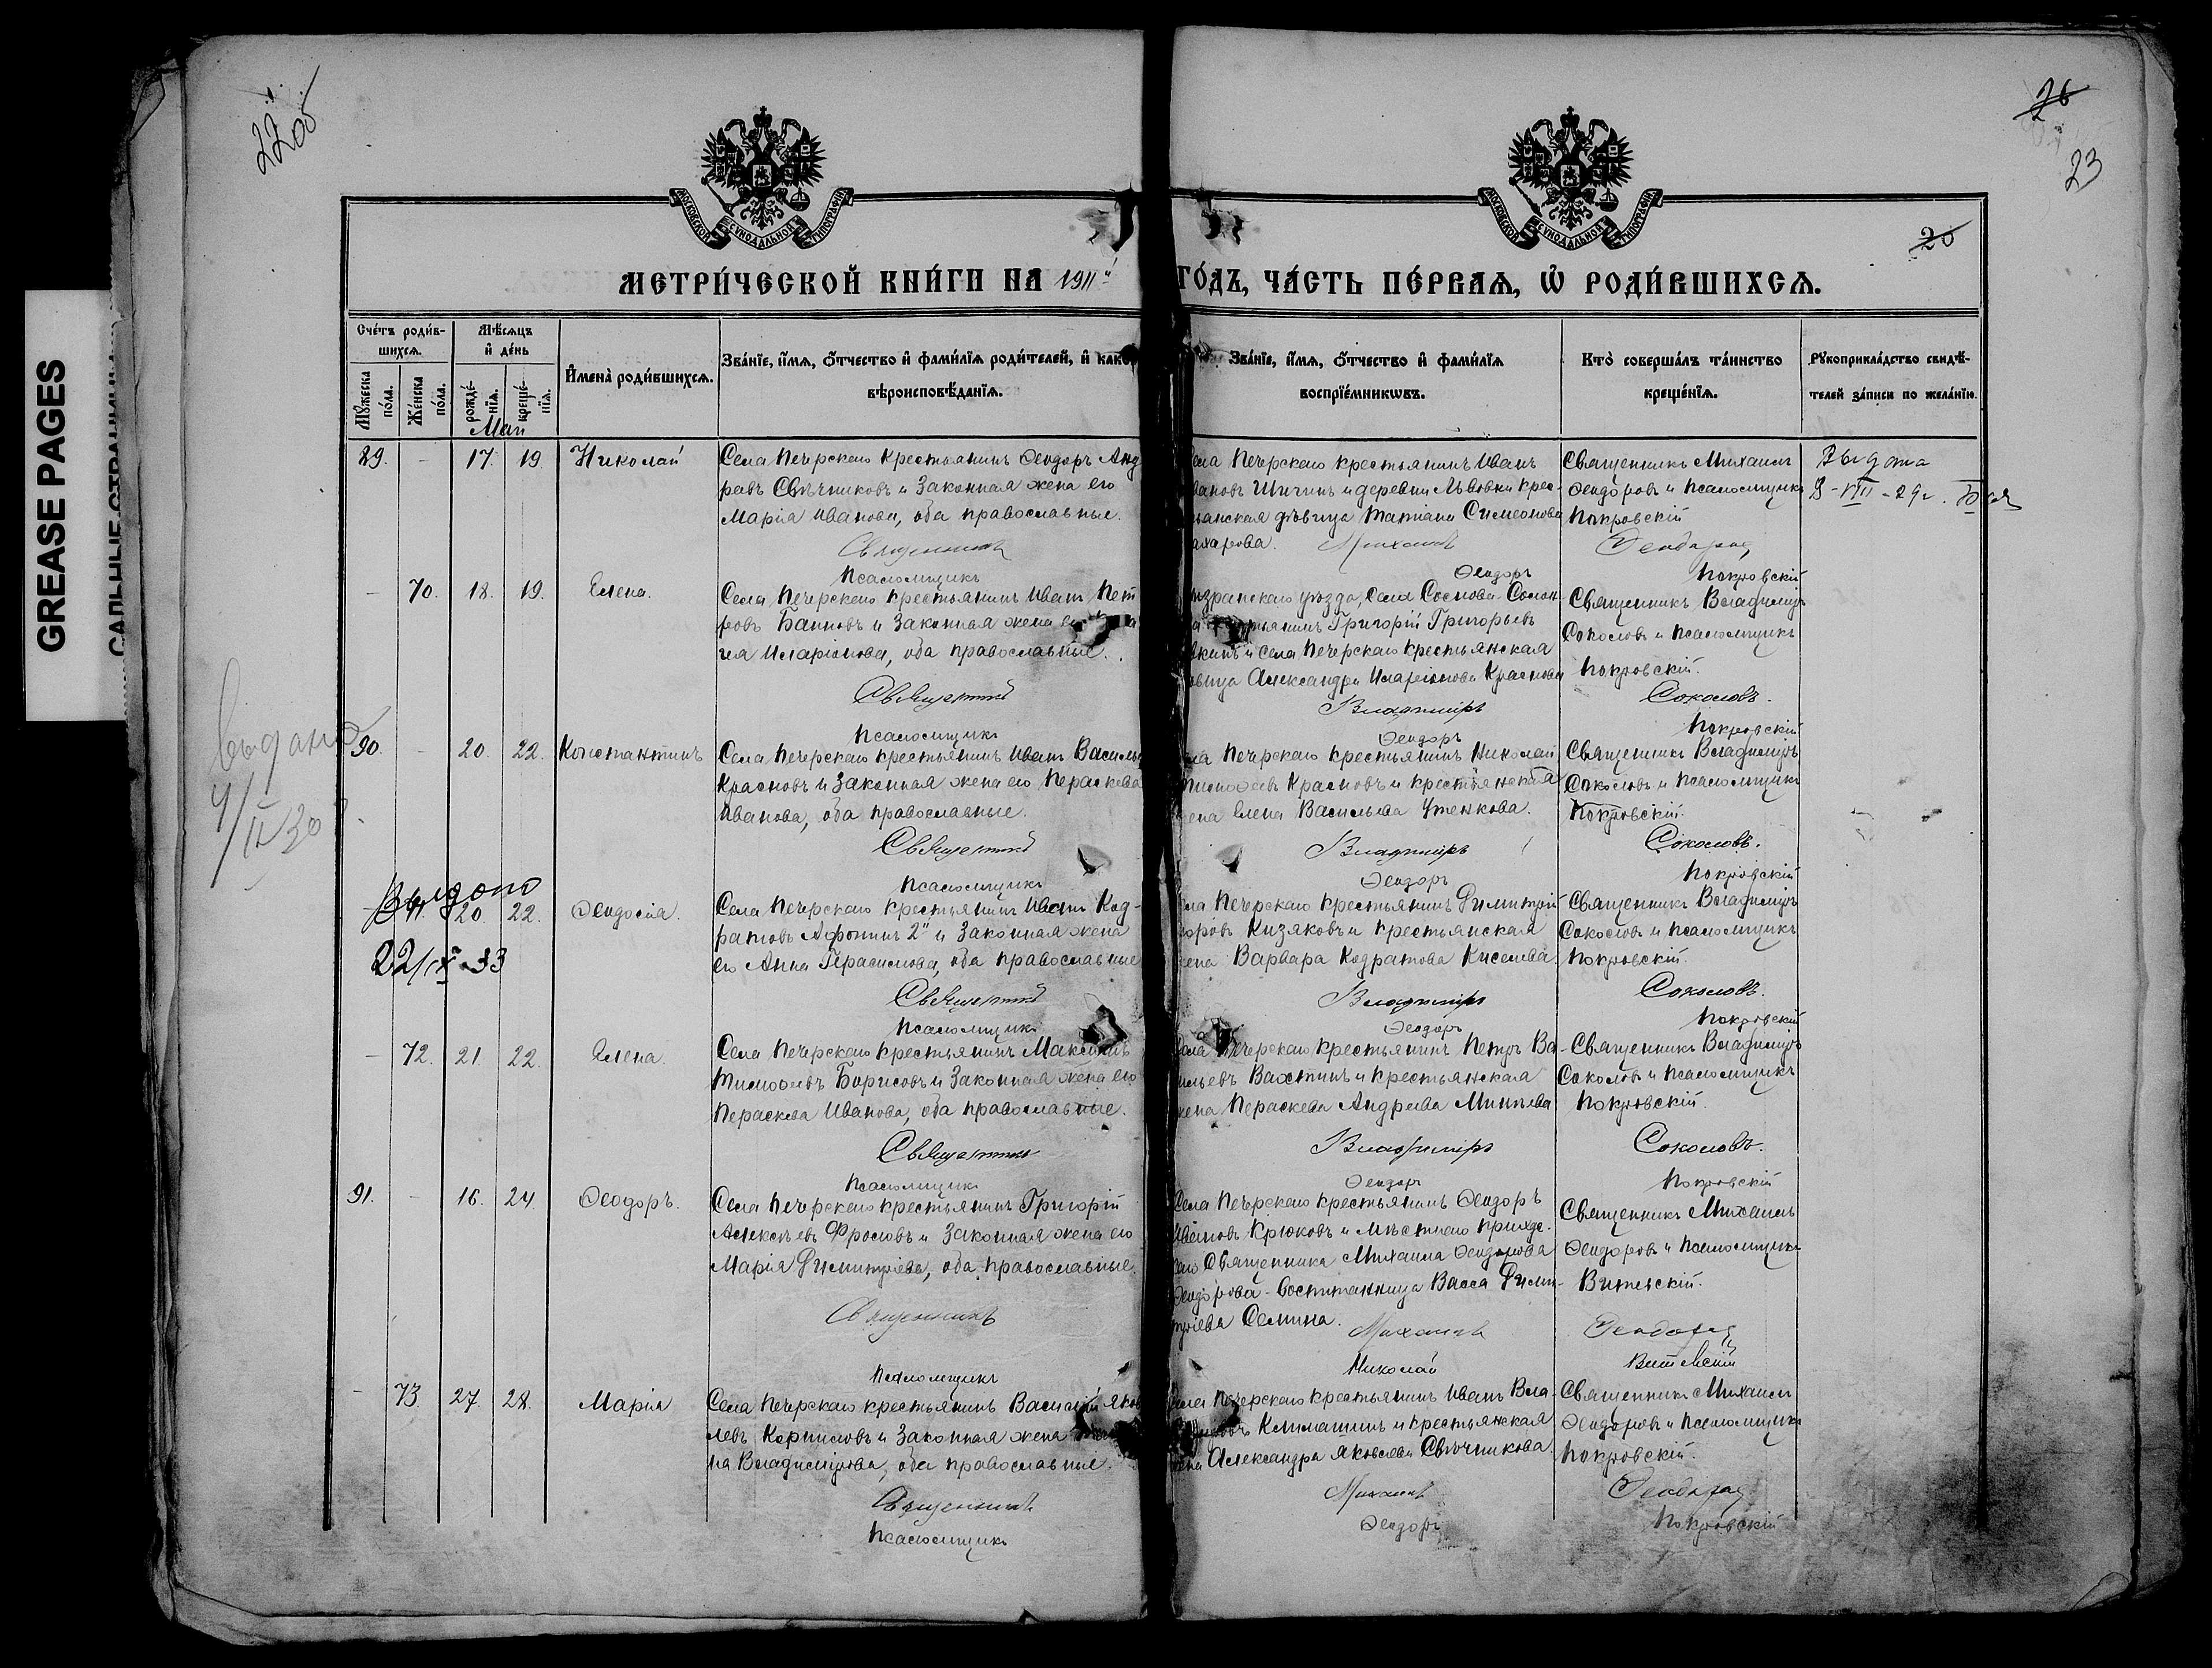 GREASE PAGES
22об
26
23
20
МОСКОВСКОЙ СУНОДАЛЬНОЙ ТИПОГРАФІИ
МОСКОВСКОЙ СУНОДАЛЬНОЙ ТИПОГРАФІИ
МЕТРИ́ЧЕСКОЙ КНИ́ГИ НА 1911й
ГО́ДЪ, ЧА́СТЬ ПЕ́РВАѦ, Ѡ РОДИ́ВШИХСѦ.
Сче́тъ роди́в-
шихсѧ.
Мꙋ́жеска по́ла.
Же́нска по́ла.
Мѣ́сѧцъ
и де́нь
рожде́-
нїѧ.
креще́-
нїѧ.
Имена̀ роди́вшихсѧ.
Зва́нїе, и́мѧ, ѻ́тчество и фами́лїѧ роди́телей, и како
вѣроисповѣ́данїѧ.
Зва́нїе, и́мѧ, ѻ́тчество и фами́лїѧ
воспрїе́мникѡвъ.
Кто̀ соверша́лъ та́инство
креще́нїѧ.
Рꙋкоприкла́дство свидѣ́-
телей за́писи по жела́нїю.
Май
89. - 17. 19. Николай
Села Печерскаго крестьянинъ Ѳеодоръ Анд
реевъ Свѣчниковъ и законная жена его
Марія Иванова, оба православные.
Священникъ
Псаломщикъ
Села Печерскаго крестьянинъ Иванъ
Ивановъ Шичинъ и деревни Львовки крес-
тьянская дѣвица Татіана Симеонова
Михаилъ
Ѳеодоръ
Священникъ Михаилъ
Ѳеодоровъ и псаломщикъ
Покровскій
Ѳеодоровъ
Покровскій
Выдана
- 70. 18. 19. Елена.
Села Печерскаго крестьянинъ Иванъ Пет
ровъ Банновъ и законная жена
Иларіонова, оба православные.
Священникъ
Псаломщикъ
Сызранскаго уѣзда, села Соснова-Солон
крестьянинъ Григорій Григорьевъ
и села Печерскаго крестьянская
дѣвица Александра Иларіонова Краснова
Владиміръ
Ѳеодоръ
Священникъ Владиміръ
Соколовъ и псаломщикъ
Покровскій.
Соколовъ.
Покровскій
Выдано
4/II 30
90. - 20. 22. Константинъ
Села Печерскаго крестьянинъ Иванъ Василь
Красновъ и законная жена его Параскева
Иванова, оба православные.
Священникъ
Псаломщикъ
Села Печерскаго крестьянинъ Николай
Тимоѳеевъ Красновъ и крестьянская
жена Елена Васильева Утенкова.
Владиміръ
Ѳеодоръ
Священникъ Владиміръ
Соколовъ и псаломщикъ
Покровскій.
Соколовъ.
Покровскій
Выдано
22/IX-33
71. 20. 22. Ѳеодосія.
Села Печерскаго крестьянинъ Иванъ Код-
ратовъ Афонинъ 2й и законная жена
его Анна Герасимова, оба православные
Священникъ
Псаломщикъ
Села Печерскаго крестьянинъ Димитрій
Кизяковъ и крестьянская
жена Варвара Кодратова Киселева
Владиміръ
Ѳеодоръ
Священникъ Владиміръ
Соколовъ и псаломщикъ
Покровскій.
Соколовъ.
Покровскій
- 72. 21. 22. Елена
Села Печерскаго крестьянинъ Максимъ
Тимоѳеевъ Борисовъ и законная жена его
Параскева Иванова, оба православные.
Священникъ
Псаломщикъ
Села Печерскаго крестьянинъ Петръ Ва-
сильевъ Вахтинъ и крестьянская
жена Параскева Андреева Минѣева
Владиміръ
Ѳеодоръ
Священникъ Владиміръ
Соколовъ и псаломщикъ
Покровскій.
Соколовъ.
Покровскій
91. - 16. 24. Ѳеодоръ.
Села Печерскаго крестьянинъ Григорій
Алексѣевъ Фроловъ и законная жена его
Марія Димитріева, оба православные.
Священникъ
Псаломщикъ
Села Печерскаго крестьянинъ Ѳеодоръ
Ивановъ Крюковъ и мѣстнаго приход-
скаго Священника Михаила Ѳеодорова
Ѳеодорова - воспитанница Васса Дими-
тріева Семина.
Михаилъ
Николай
Священникъ Михаилъ
Ѳеодоровъ и псаломщикъ
Витевскій.
Ѳеодоровъ
Витевскій
- 73. 27. 28. Марія
Села Печерскаго крестьянинъ Василій Яков
левъ Корниловъ и законная жена
на Владимірова, оба православные.
Священникъ
Псаломщикъ
Села Печерскаго крестьянинъ Иванъ Вла-
Климашинъ и крестьянская
жена Александра Яковлева Свѣчникова.
Михаилъ
Ѳеодоръ
Священникъ Михаилъ
Ѳеодоровъ и псаломщикъ
Покровскій.
Ѳеодоровъ
Покровскій